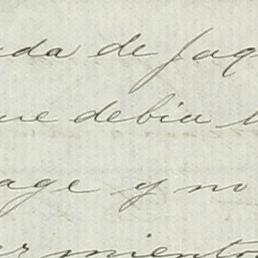 da de Jaq
ue debia
age y no
mientos